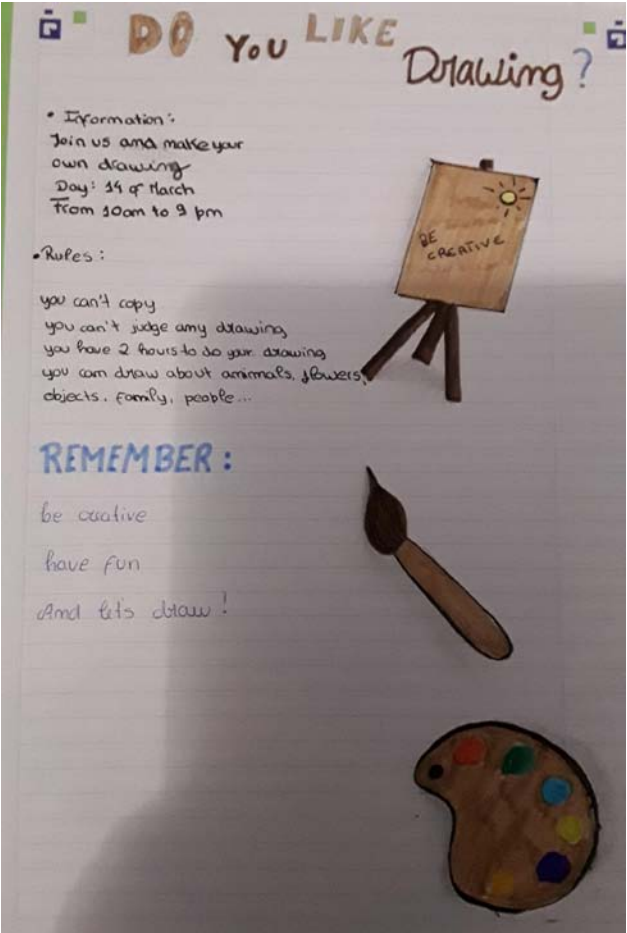 DO YOU LIKE Drawing?
• Information:
Join us and make your
own drawing
Day: 14 of March
From 10am to 9 pm
• Rules:
you can't copy
you can't judge any drawing
you have 2 hours to do your drawing
you can draw about animals, flowers,
objects, family, people...
BE
CREATIVE
REMEMBER:
be creative
have fun
And let's draw!